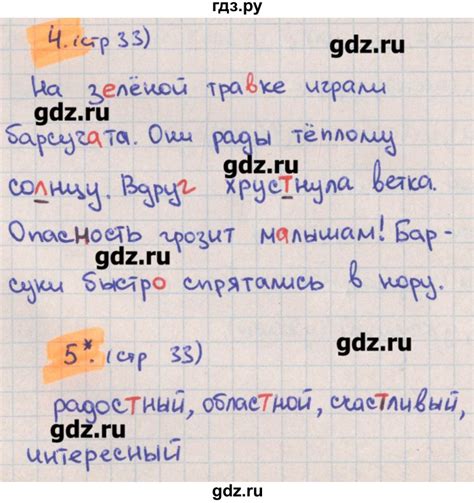 гдз.ру
4. (стр 33)
gdz.ru
На зелёной травке играли
gdz.ru
барсучата. Они рады тёплому
gdz.ru
солнцу. Вдруг хрустнула ветка.
Опасность грозит малышам! Бар-
gdz.ru
суки быстро спрятались в нору.
gdz.ru
5*. (стр 33)
радостный, областной, счастливый,
gdz.ru
gdz.ru
интересный